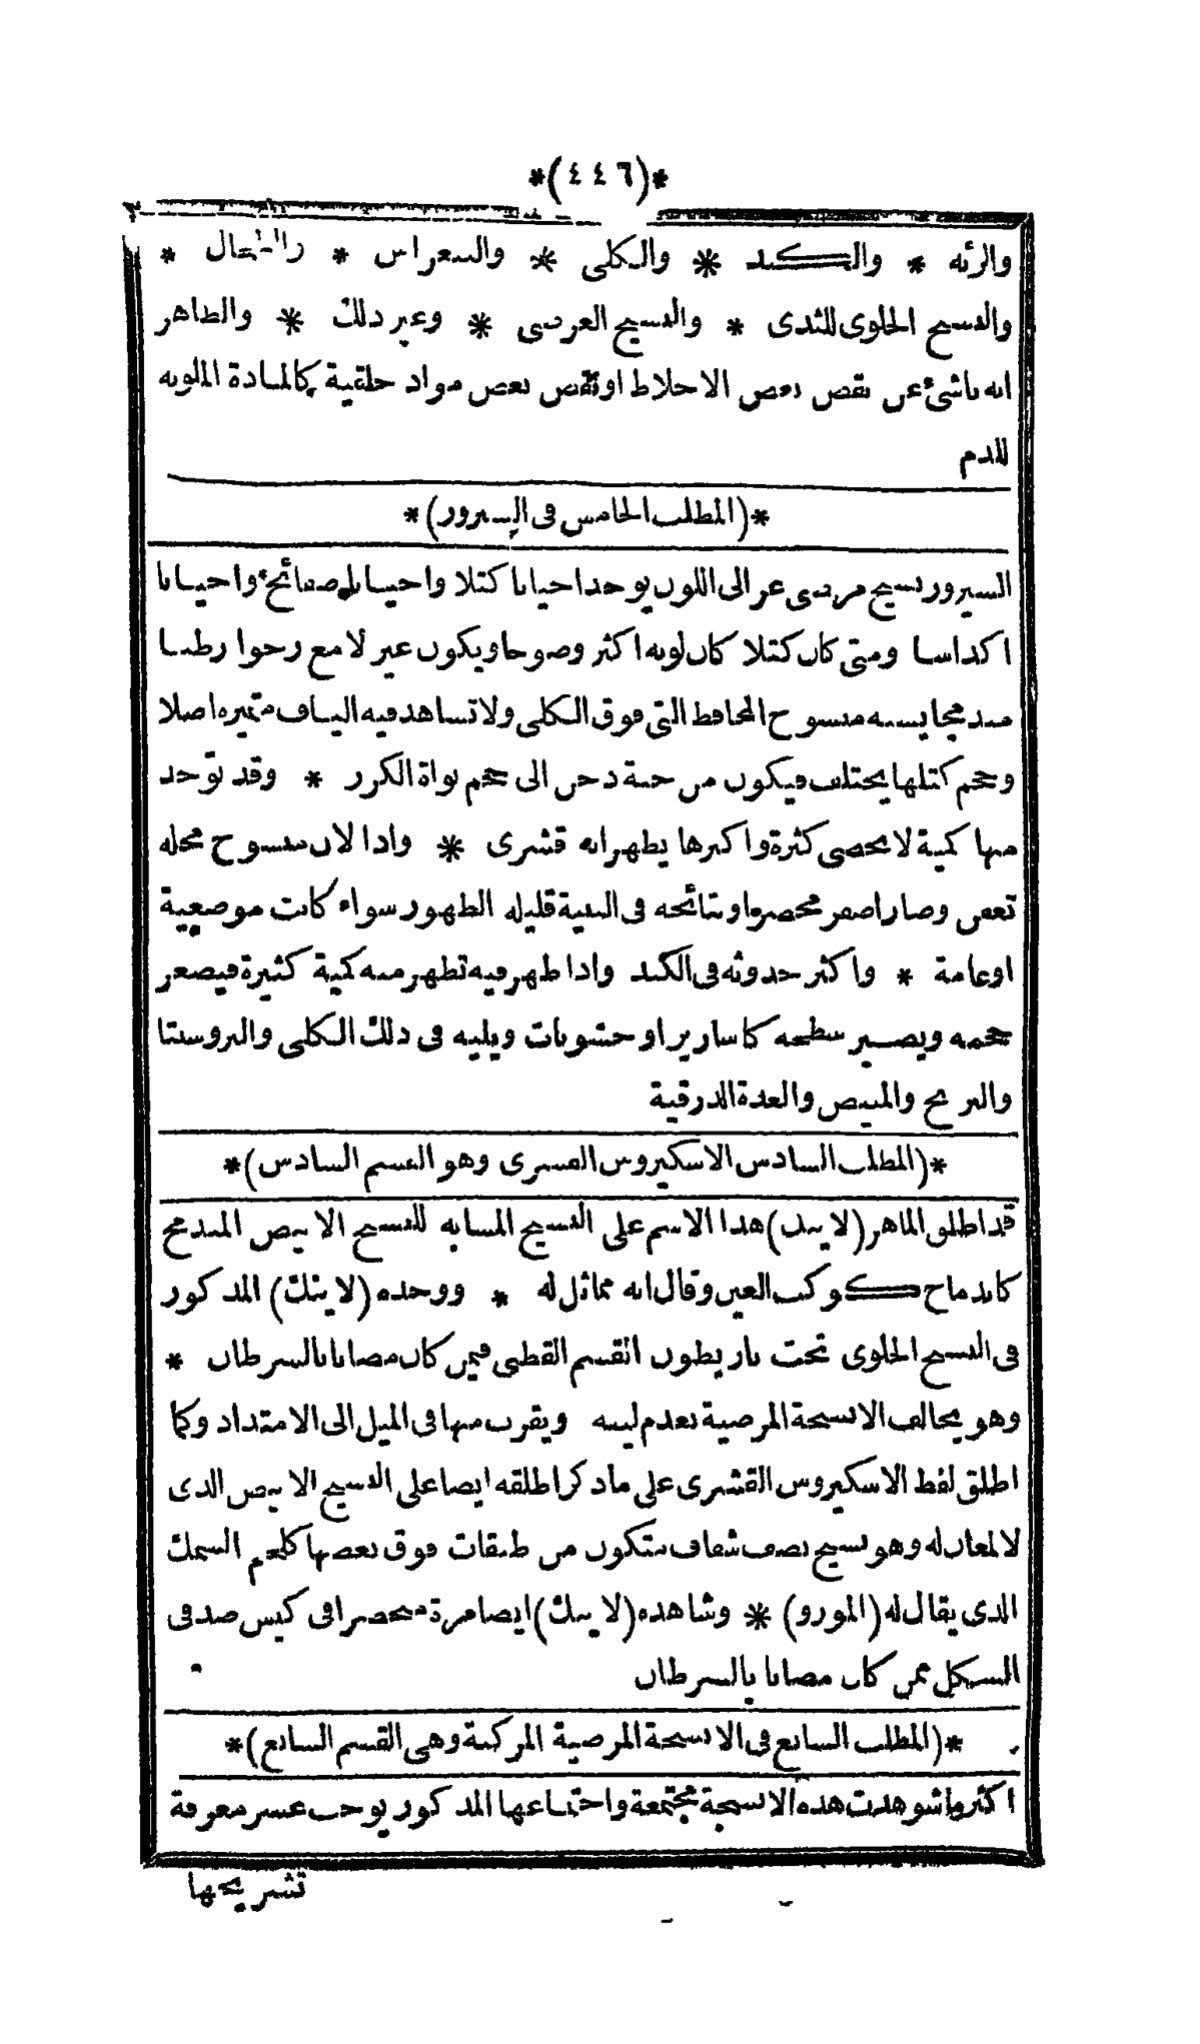 *(٤٤٦)*
والرئه * والكبد * والكلى * والبنقراس * والطحال *
والنسيج الخلوى للثدى * والنسيج العرضى * وغير ذلك * والظاهر
انه ناشئ عن نقص بعض الاخلاط او نقص بعض مواد خلقية كالمادة الملونه
للدم
*(المطلب الخامس فى السيرور)*
السيرور نسيج مرضى عر الى اللون يوجد احيانا كتلا واحيانا صفائح واحيانا
اكداسا ومتى كان كتلا كان لونه اكثر وضوحا ويكون غير لامع رخوا رطبا
مندمجا يشبه منسوج المحافظ التى فوق الكلى ولا تشاهد فيه الياف متميزه اصلا
وحجم كتلها يختلف فيكون من حبة دخن الى حجم نواة الكرز * وقد توجد
منها كمية لا تحصى كثرة واكبرها يظهر انه قشرى * واذا لان منسوج محله
تعفن وصار اصفر مخضرا ونتائجه فى البنية قليله الظهور سواء كانت موضعية
او عامة * واكثر حدوثه فى الكبد واذا ظهر فيه تظهر منه كمية كثيرة فيصغر
حجمه ويصير سطحه كاسارير او خشونات ويليه فى ذلك الكلى والبروستتا
والبربخ والمبيض والغدة الدرقية
*(المطلب السادس الاسكيروس القشرى وهو القسم السادس)*
قد اطلق الماهر (لاينك) هذا الاسم على النسيج المشابه للنسيج الابيض المندمج
كاندماج كوكب العين وقال انه مماثل له * ووجده (لاينك) المذكور
فى النسيج الخلوى تحت باريطون القسم القطنى فيمن كان مصابا بالسرطان *
وهو يخالف الانسجة المرضية بعدم لينه ويقرب منها فى الميل الى الامتداد وكما
اطلق لفظ الاسكيروس القشرى على ما ذكر اطلقه ايضا على النسيج الابيض الذى
لا لمعان له وهو نسيج نصف شفاف متكون من طبقات فوق بعضها كلحم السمك
الذى يقال له (المورو) * وشاهده (لاينك) ايضا مرة منحصرا فى كيس صدفى
الشكل ممن كان مصابا بالسرطان
*(المطلب السابع فى الانسجة المرضية المركبة وهى القسم السابع)*
اكثر ما شوهدت هذه الانسجة مجتمعة واجتماعها المذكور يوجب عسر معرفة
تشريحها